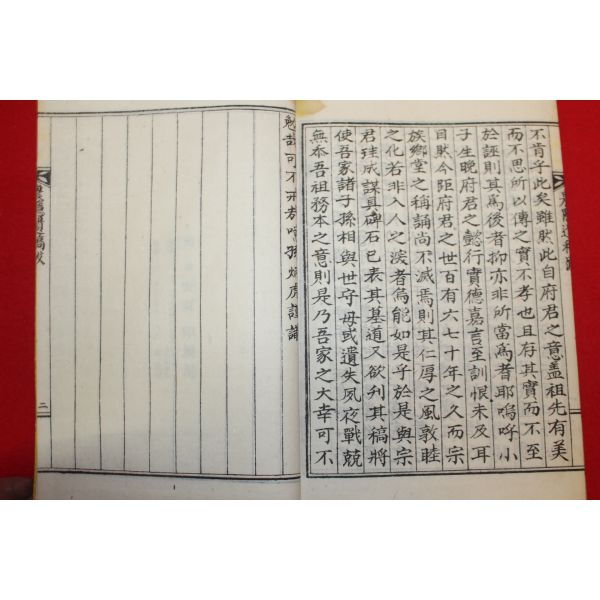 不肯乎此矣雖然此自府君之意盖祖先有美
而不思所以傳之實不孝也且存其實而不至
於誣則其爲後者抑亦非所當爲者耶嗚呼小
子生晩府君之懿行實德嘉言至訓恨未及耳
目然今距府君之世百有六七十年之久而宗
族鄉堂之稱誦尚不滅焉則其仁厚之風敦睦
之化若非入人之深者烏能如是乎於是與宗
君珪成謀具碑石已表其墓道又欲刊其稿將
使吾家諸子孫相與世守毋或遺失夙夜戰兢
無忝吾祖務本之意則是乃吾家之大幸可不
勉哉可不戒哉 孫 謹識
二